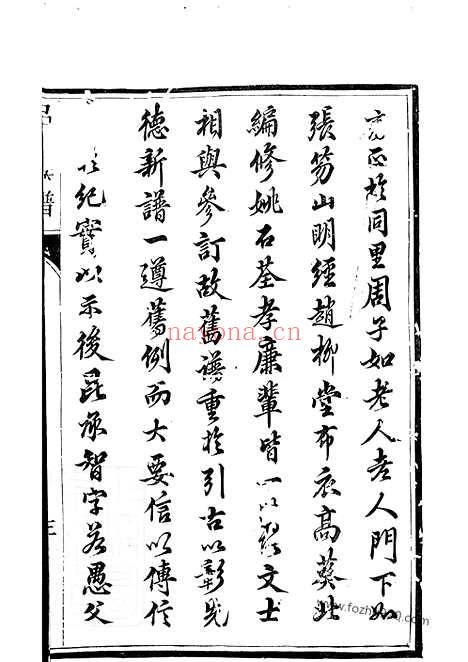 就正於同里周子如老人老人門下如
張笏山明經趙柳堂布衣高葵北
編修姚石荃孝廉輩皆一以文士
相與參訂故舊譜重於引古以彰先
德新譜一遵舊例而大要信以傳信
以紀實以示後昆承智字若愚父
呂 譜
三
nayona.cn
www.fozhu.com